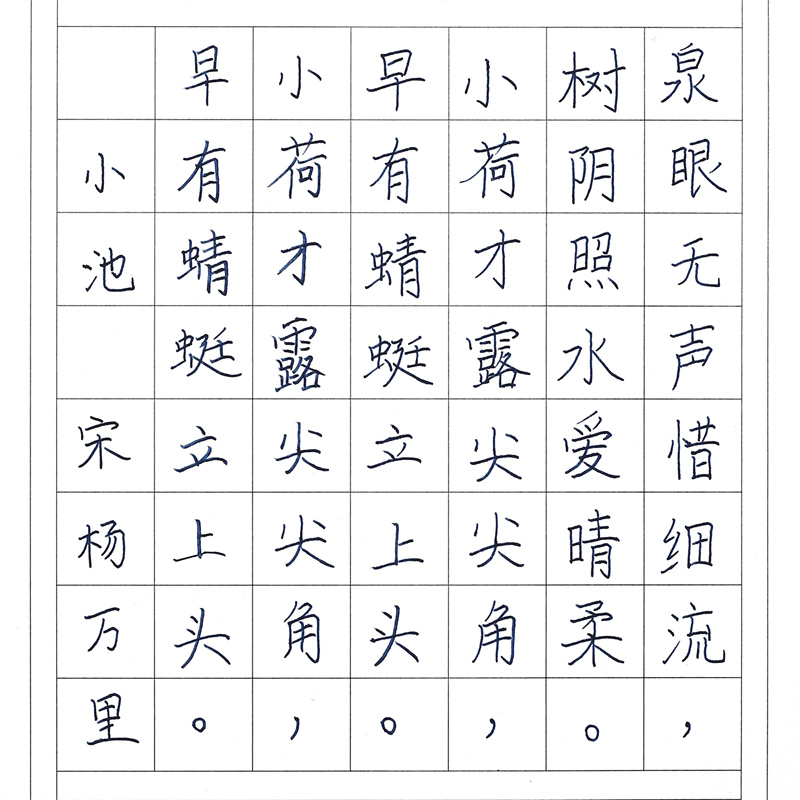 泉眼无声惜细流，
树阴照水爱晴柔。
小荷才露尖尖角，
早有蜻蜓立上头。
小荷才露尖尖角，
早有蜻蜓立上头。
小池 宋杨万里